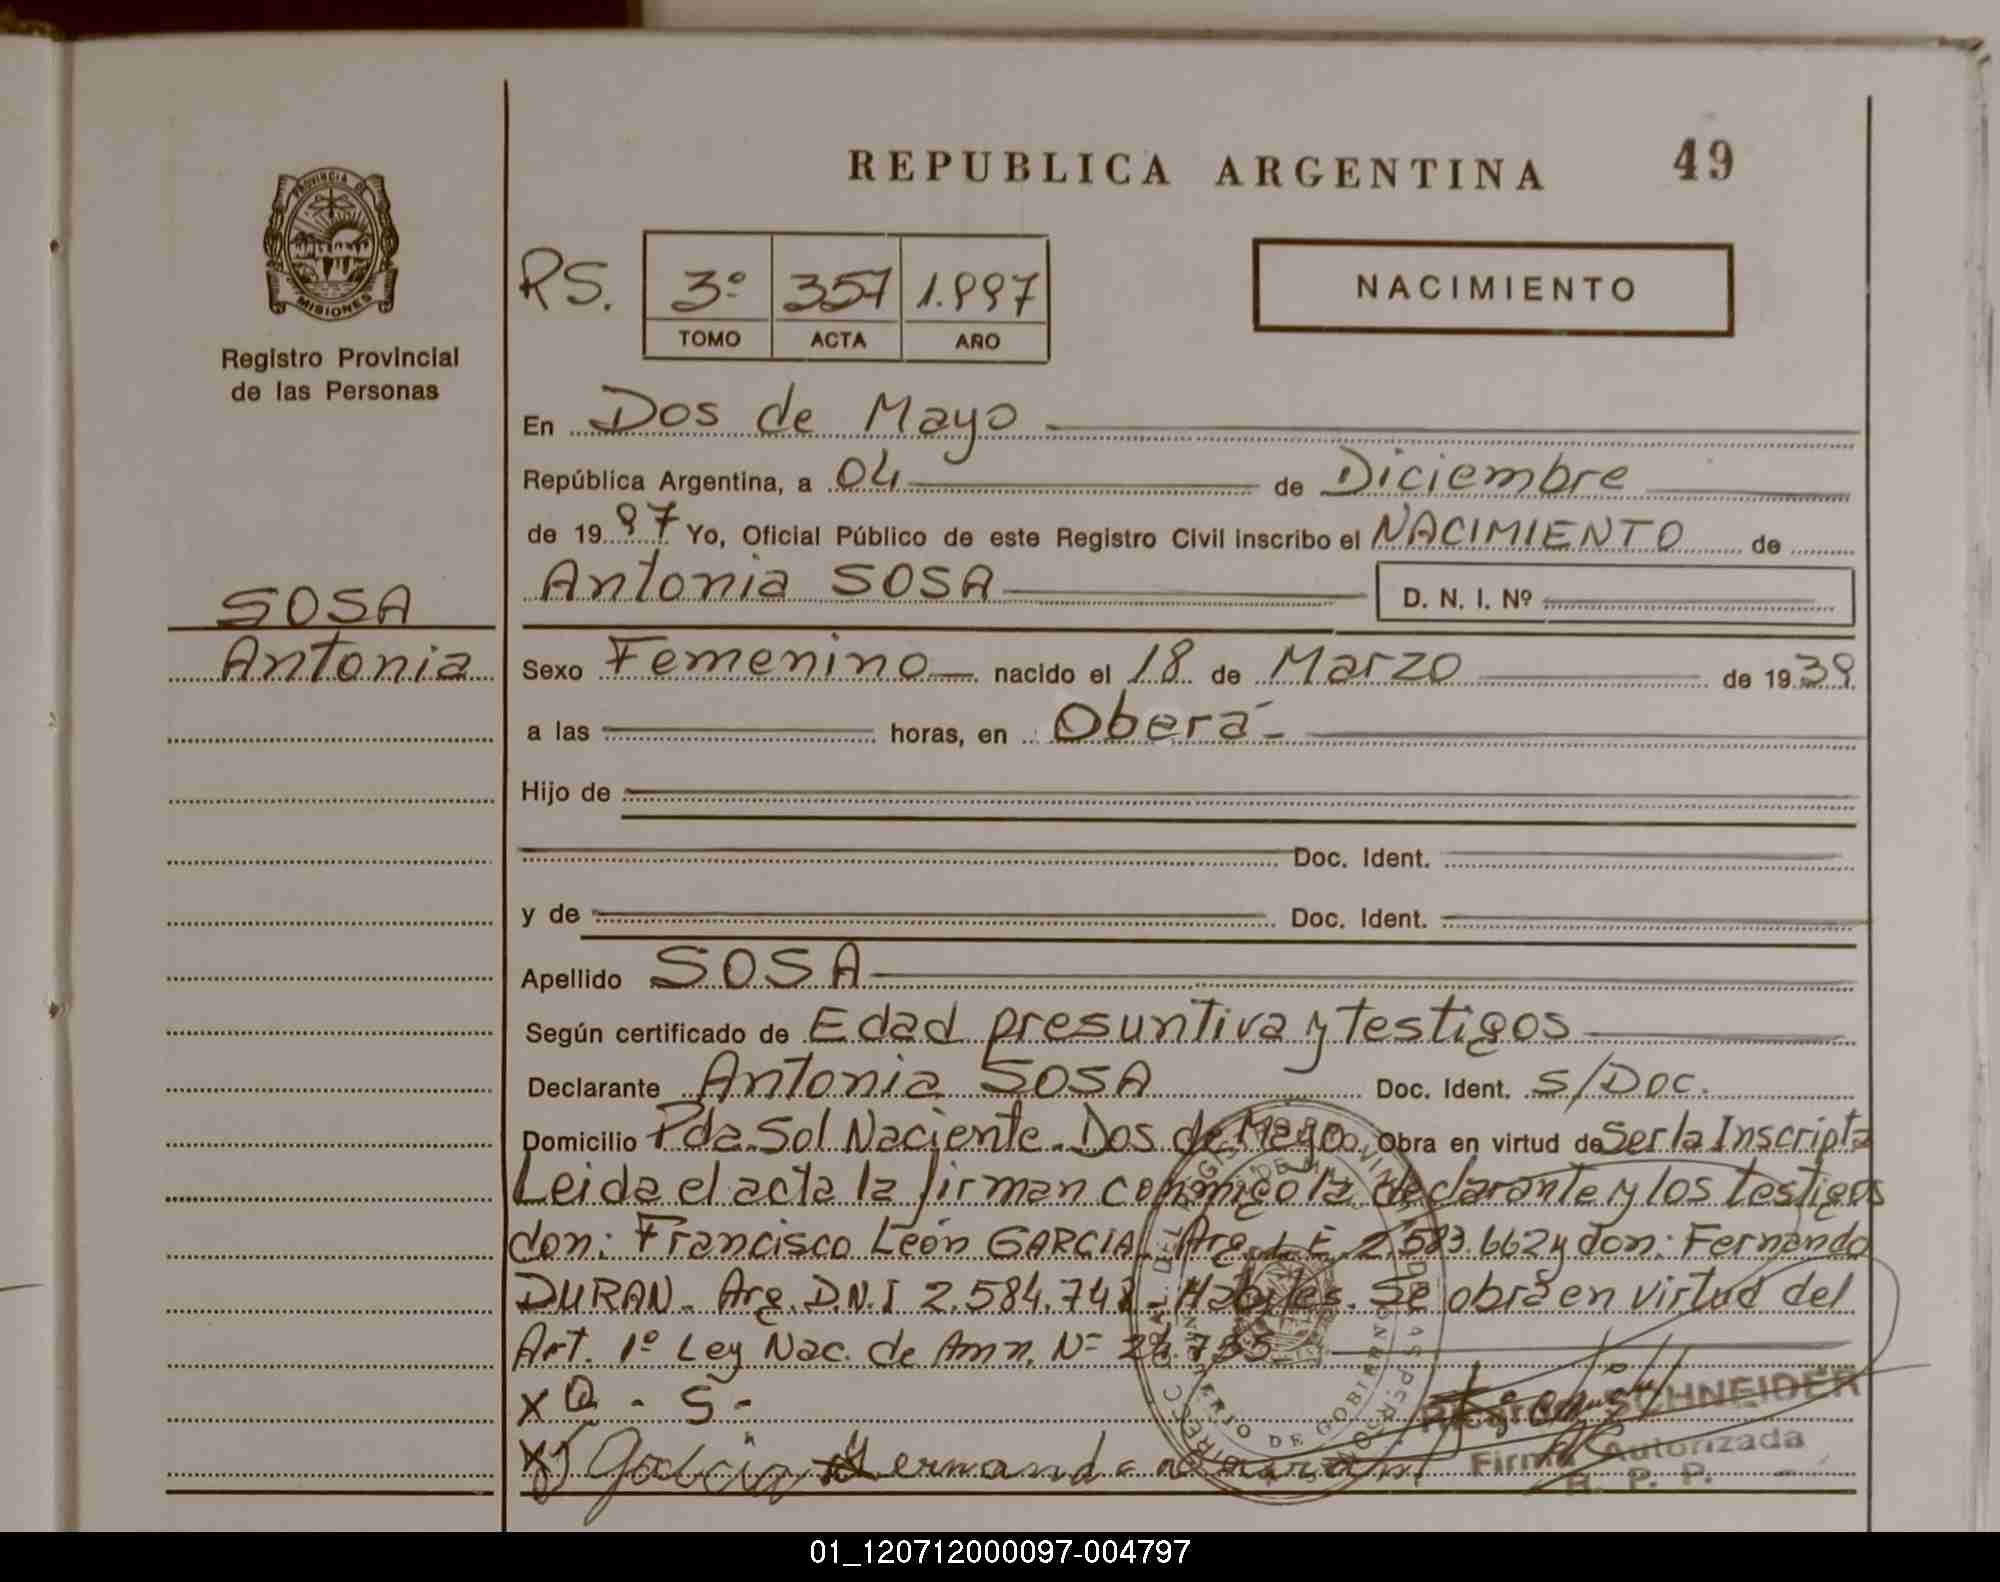 REPUBLICA ARGENTINA 49
PROVINCIA DE MISIONES
Registro Provincial
de las Personas
RS. 3º 357 1.997
TOMO ACTA AÑO
NACIMIENTO
En Dos de Mayo
República Argentina, a 04 de Diciembre
de 1997 Yo, Oficial Público de este Registro Civil inscribo el NACIMIENTO de
Antonia SOSA D. N. I. Nº
SOSA
Antonia
Sexo Femenino nacido el 18 de Marzo de 1939
a las horas, en Oberá
Hijo de
Doc. Ident.
y de Doc. Ident.
Apellido SOSA
Según certificado de Edad presuntiva y testigos
Declarante Antonia SOSA Doc. Ident. S/Doc.
Domicilio Pda. Sol Naciente. Dos de Mayo Obra en virtud de Ser la Inscripta
Leida el acta la firman conmigo la declarante y los testigos
don: Francisco León GARCIA. Arg. L.E. 2.583.662 y don: Fernando
DURAN. Arg. D.N.I 2.584.748 - Habiles. Se obra en virtud del
Art. 1º Ley Nac. de Amn. Nº 24.755
x A - S -
x) Garcia Fernando Duran
SCHNEIDER
Firma Autorizada
R. P. P.
01_120712000097-004797